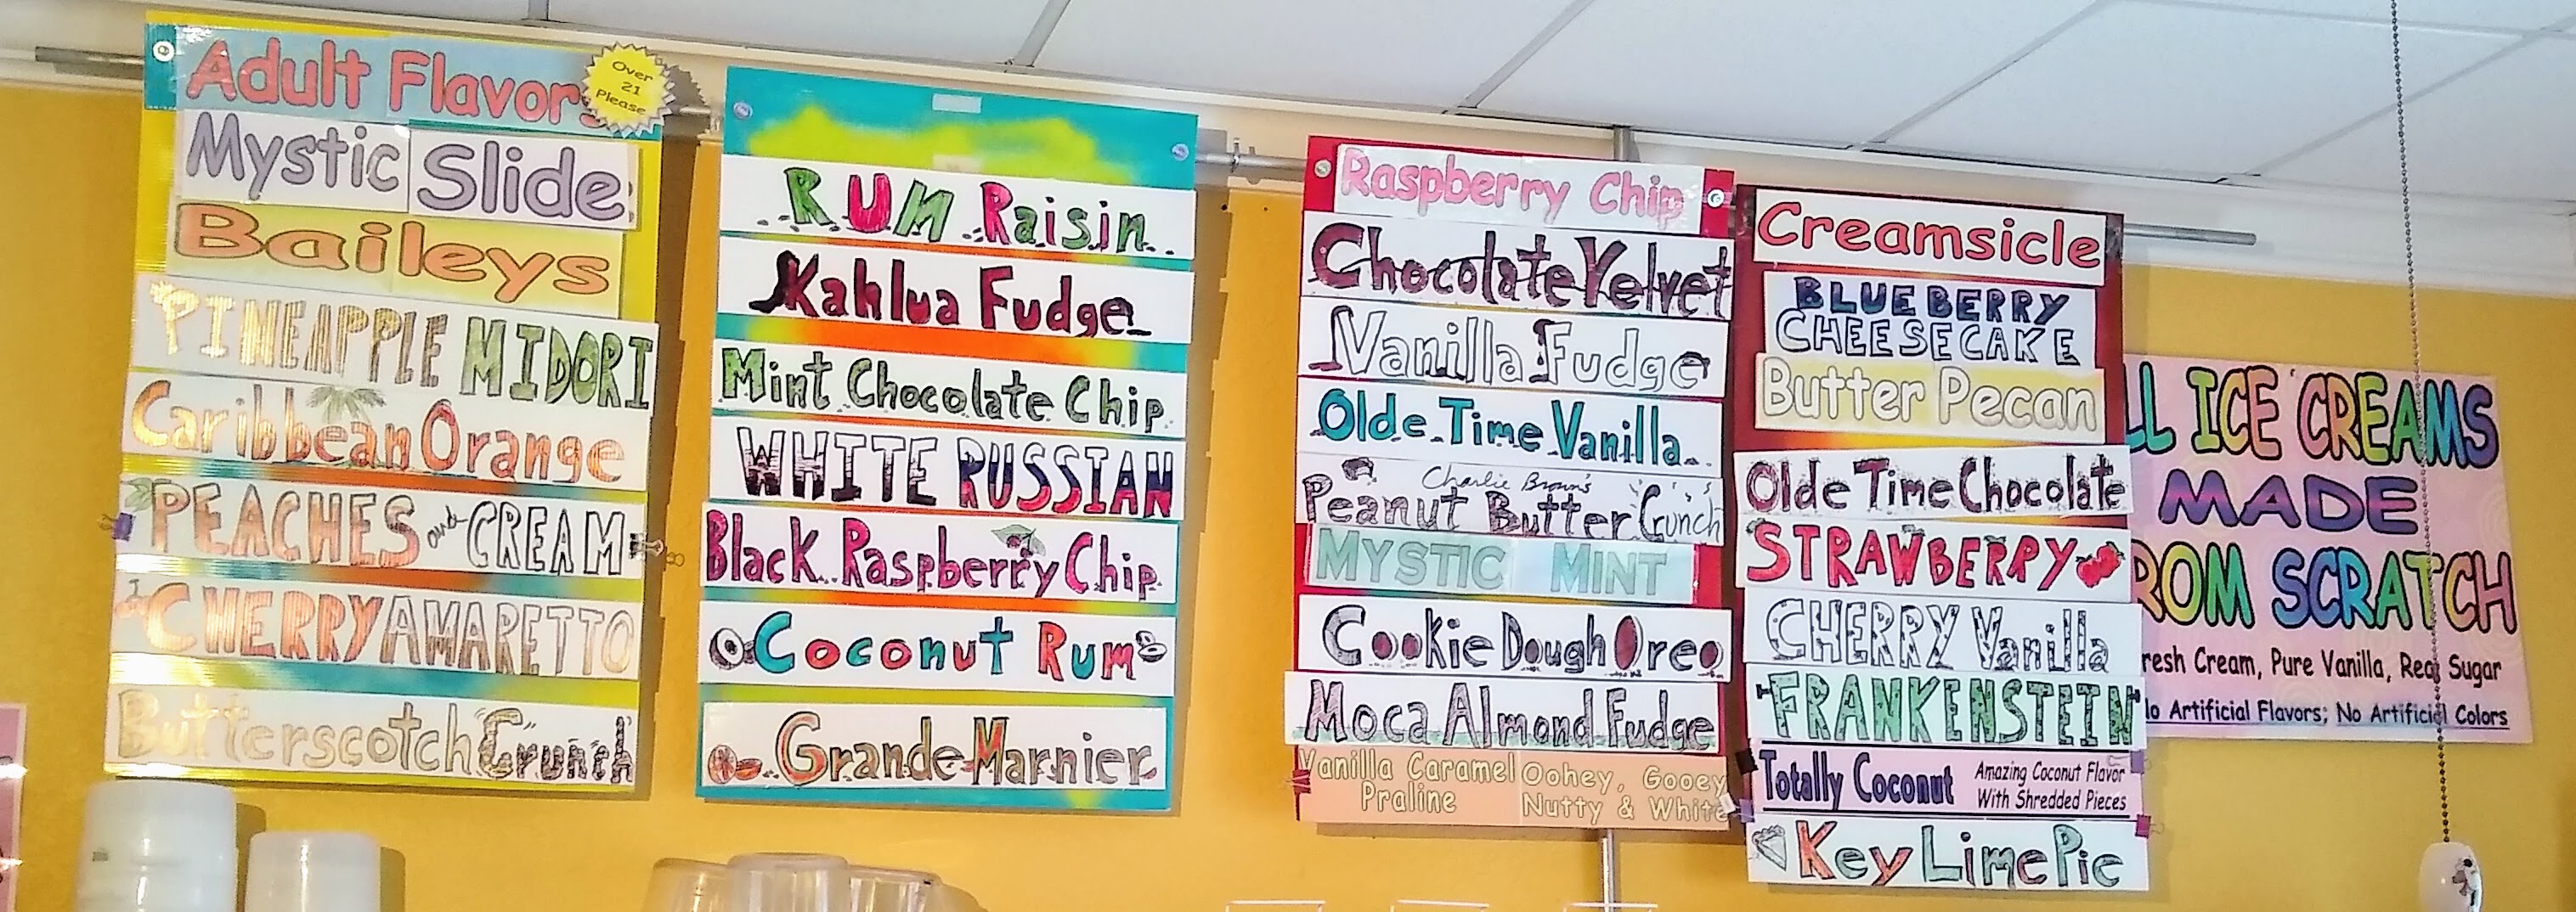 Adult Flavors
Over
21
Please
Mystic Slide
Baileys
PINEAPPLE MIDORI
Caribbean Orange
PEACHES and CREAM
CHERRY AMARETTO
Butterscotch Crunch
RUM Raisin
Kahlua Fudge
Mint Chocolate Chip
WHITE RUSSIAN
Black Raspberry Chip
Coconut Rum
Grande Marnier
Raspberry Chip
Chocolate Velvet
Vanilla Fudge
Olde Time Vanilla
Charlie Brown's
Peanut Butter Crunch
MYSTIC MINT
Cookie Dough Oreo
Moca Almond Fudge
Vanilla Caramel
Praline
Oohey, Gooey
Nutty & White
Creamsicle
BLUEBERRY
CHEESECAKE
Butter Pecan
Olde Time Chocolate
STRAWBERRY
CHERRY Vanilla
FRANKENSTEIN
Totally Coconut
Amazing Coconut Flavor
With Shredded Pieces
Key Lime Pie
LL ICE CREAMS
MADE
ROM SCRATCH
resh Cream, Pure Vanilla, Real Sugar
lo Artificial Flavors; No Artificial Colors